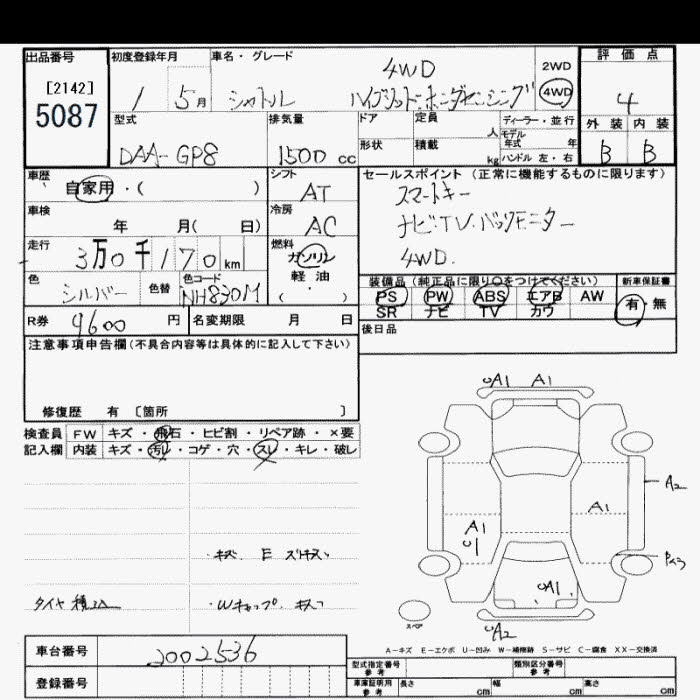 出品番号
[2142]
5087
初度登録年月
1 5月
車名・グレード
シャトル
4WD
ハイブリット・ホンダセンシング
2WD
4WD
評価点
4
型式
DAA-GP8
排気量
1500 cc
ドア
定員
人
形状
積載
kg
ディーラー・並行
モデル年式 年
ハンドル 左・右
外装 内装
B B
車歴
自家用・( )
シフト
AT
車検
年 月( 日)
冷房
AC
走行
3万0千170km
燃料
ガソリン
軽油
( )
色
シルバー
色替
色コード
NH830M
セールスポイント(正常に機能するものに限ります)
スマートキー
ナビ・TV・バックモニター
4WD.
装備品(純正品に限り○をつけてください)
PS PW ABS エアB AW
SR ナビ TV カワ
新車保証書
有・無
R券 9600 円
名変期限 月 日
後日品
注意事項申告欄(不具合内容等は具体的に記入して下さい)
修復歴 有 〔箇所 〕
検査員記入欄
FW キズ・飛石・ヒビ割・リペア跡・×要
内装 キズ・汚レ・コゲ・穴・スレ・キレ・破レ
タイヤ積込
・Wキャップ. キズ
A1 A1
A2
A1
A1
U1
A1
A2
スペア
A-キズ E-エクボ U-凹み W-補修跡 S-サビ C-腐食 XX-交換済
車台番号
2002536
登録番号
型式指定番号
参考
類別区分番号
参考
車庫証明用
参考
長さ cm 幅 cm 高さ cm